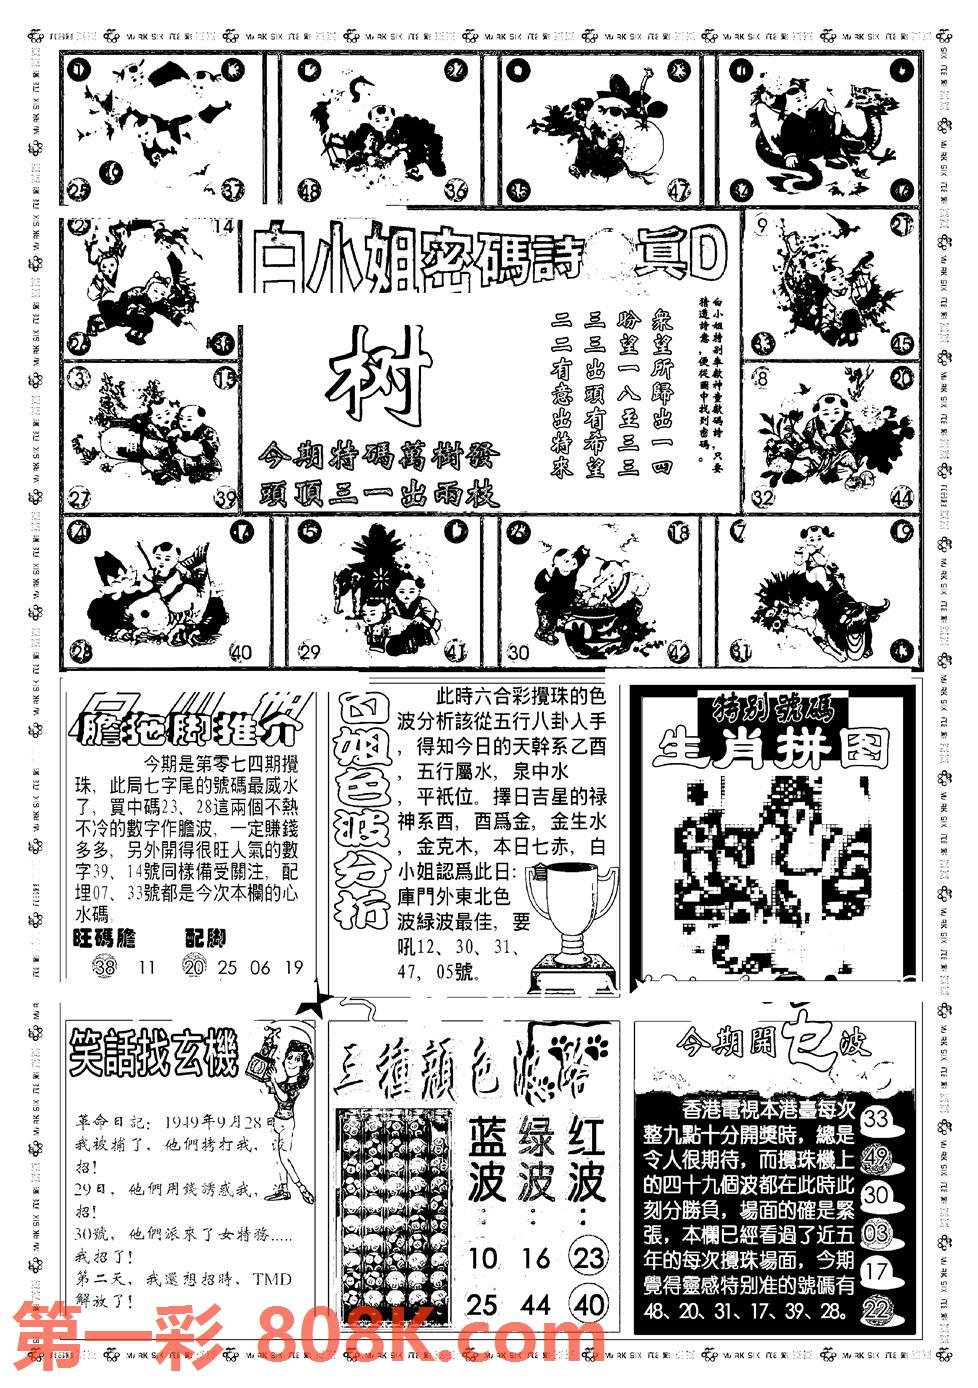 白小姐密碼詩
真D
树
今期特碼萬樹發
頭頂三一出兩枝
衆望所歸出一四
盼望一八至三三
三三出頭有希望
二二有意出特來
白小姐特别奉獻神童獻碼詩,只要
猜透詩意,便從圖中找到密碼。
25
37
48
36
35
47
2
14
26
9
21
33
45
3
15
27
39
8
20
32
44
28
40
5
29
41
30
18
42
7
19
31
膽拖脚推介
今期是第零七四期攪
珠，此局七字尾的號碼最威水
了，買中碼23、28這兩個不熱
不冷的數字作膽波，一定賺錢
多多，另外開得很旺人氣的數
字39、14號同樣備受關注，配
埋07、33號都是今次本欄的心
水碼.
旺碼膽 配脚
38 11 20 25 06 19
白姐色波分析
此時六合彩攪珠的色
波分析該從五行八卦人手
，得知今日的天幹系乙酉
，五行屬水，泉中水
，平衹位。擇日吉星的禄
神系酉，酉爲金，金生水
，金克木，本日七赤，白
小姐認爲此日：倉
庫門外東北色
波緑波最佳，要
吼12、30、31、
47，05號。
特别號碼
生肖拼图
笑話找玄機
革命日記：1949年9月28日
我被捕了，他們拷打我，没
招！
29日，他們用錢誘惑我，没
招！
30號，他們派來了女特務.....
我招了！
第二天，我還想招時，TMD
解放了！
三種顔色波路
蓝波：
10
25
绿波：
16
44
红波：
23
40
今期開七波
香港電視本港臺每次
整九點十分開獎時，總是
令人很期待，而攪珠機上
的四十九個波都在此時此
刻分勝負，場面的確是緊
張，本欄已經看過了近五
年的每次攪珠場面，今期
覺得靈感特别准的號碼有
48、20、31、17、39、28。
33
49
30
03
17
22
第一彩 808K.com